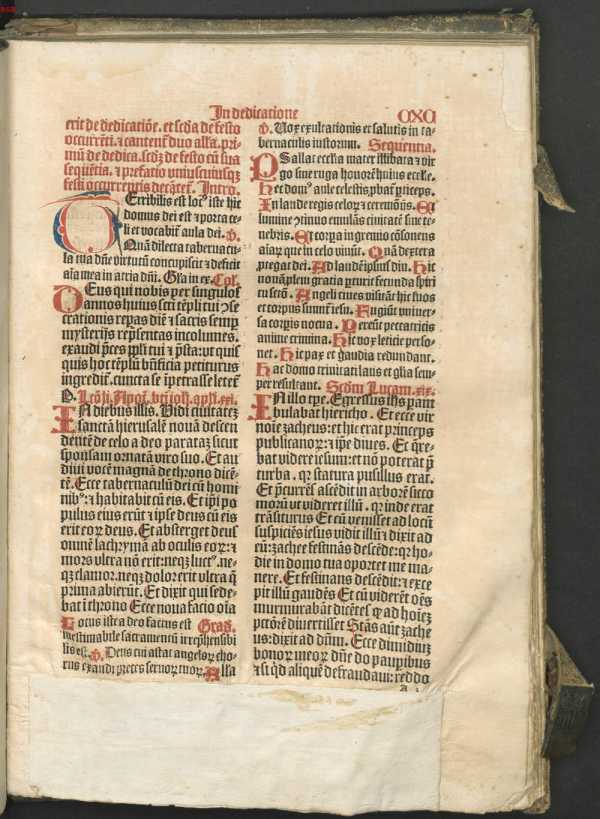 In dedicatione
CXCI
erit de dedicatiõe. et scḋa de festo
occurrẽti. ⁊ cantent᷑ duo alľa. pri-
mũ de dedica. scḋʒ de festo cũ sua
sequẽtia. ⁊ prefatio vniuscuiusqʒ
festi occurrentis decãtet᷑. Intro.
TErribilis est locꝰ iste hic
domus dei est ⁊ porta ce-
li et vocabit᷑ aula dei. ℣.
Quã dilecta tabernacu-
la tua dñe virtutũ concupiscit ⁊ deficit
aĩa mea in atria dñi. Gľa in ex. Coľ.
DEus qui nobis per singulos
annos huius scti tẽpli tui ↄ̃se
crationis repas diẽ ⁊ sacris semꝑ
mysterijs rep̃sentas incolumes.
exaudi p̃ces ppľi tui ⁊ p̃sta: vt quis
quis hoc tẽplũ bñficia petiturus
ingredit᷑. cuncta se ĩpetrasse letet᷑
IN diebus illis. Vidi ciuitatẽ
sanctã hierusalẽ nouã descen
dentẽ de celo a deo paratã: sicut
sponsam ornatã viro suo. Et au
diui vocẽ magnã de throno dicẽ-
tẽ. Ecce tabernaculũ dei cũ homi
nibꝰ: ⁊ habitabit cũ eis. Et ip̃i po
pulus eius erũt ⁊ ipse deus cũ eis
erit eoꝝ deus. Et absterget deus
omnẽ lachrymã ab oculis eoꝝ: ⁊
mors vltra nõ erit: neqʒ luctꝰ. ne-
qʒ clamor. neqʒ dolor erit vltra q̃
prima abierũt. Et dixit qui sede-
bat ĩ throno Ecce noua facio oĩa
LOcus iste a deo factus est Grad.
inestimabile sacramentũ irrep̃hensibi
lis est. ℣. Deus cui astat angeloꝝ cho-
rus exaudi preces seruoꝝ tuoꝝ. Alľa
℣. Vox exultationis et salutis in ta-
bernaculis iustorum. Sequentia.
PSallat ecclľia mater illibata ⁊ vir
go sine ruga honorẽ huius eccľe.
Hec domꝰ aule celestis ꝓbat᷑ ꝑticeps.
In laude regis celoꝝ ⁊ ceremõijs. Et
lumine ↄ̃tinuo emulãs ciuitatẽ sine te-
nebris. Et corꝑa in gremio cõfouens
aĩaꝝ que in celo viuũt. Quã dextera
ptegat dei. Ad laudẽ ipsius diu. Hic
nouã plem gratia ꝑturit fecunda spiri
tu sctõ. Angeli ciues visitãt hic suos
et corpus sumit᷑ iesu. Fugiũt vniuer-
sa corpis nocua. Pereũt peccatricis
anime crimina. Hic vox leticie perso-
net. Hic pax et gaudia redundant.
Hac domo trinitati laus et gľia sem-
per resultant. Scḋm Lucam. xix.
IN illo tꝑe. Egressus ihs ꝑam
bulabat hiericho. Et ecce vir
noĩe zacheus: et hic erat princeps
publicanoꝝ: ⁊ ip̃e diues. Et q̃re-
bat videre iesum: et nõ poterat p̃
turba. qꝛ statura pusillus erat.
Et p̃currẽs ascẽdit in arborẽ sicco
morũ vt videret illũ. qꝛ inde erat
trãsiturus Et cũ venisset ad locũ
suspiciẽs iesus vidit illũ ⁊ dixit ad
eũ: zachee festinãs descẽde: qꝛ ho-
die in domo tua oportet me ma-
nere. Et festinans descẽdit: ⁊ exce
pit illũ gaudẽs Et cũ viderẽt oẽs
murmurabãt dicẽtes ꝙ ad hoĩez
pctõrẽ diuertisset Stãs aũt zache
us: dixit ad dñm. Ecce dimidiũ
bonoꝝ meoꝝ dñe do paupibus
⁊ si qḋ aliquẽ defraudaui: reddo